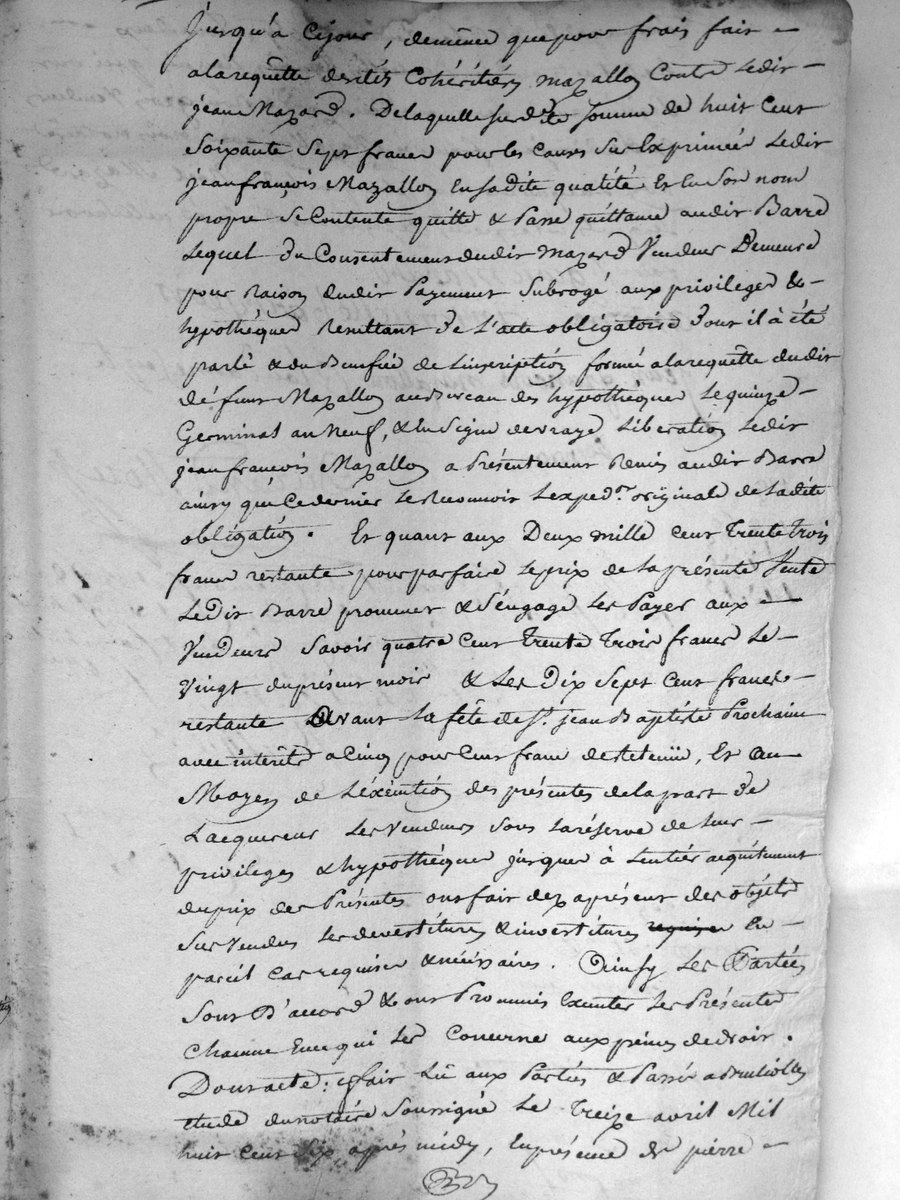 jusqu'à cejour, deméme que pour frais fait
alarequêtte desdits Cohéritiérs Mazallon Contre Ledit
jean Mazard. De laquelle susdte somme de huit Cent
Soixante Sept francs pour les Causes sus Exprimées Ledit
jean françois Mazallon En sadite qualité Et En Son nom
propre Se Contente quitte & Passe quittance audit Barre
Lequel du Consentement dudit Mazard Vendeur Demeure
pour Raison dudit Payement Subrogé aux privileges &
hypothéques Résultant de L'acte obligatoire dont il à été
parlé & du Bénéfice de Linscription formée alarequêtte dudit
défunt Mazallon au Bureau des hypothéques Le quinze
Germinal an Neuf, & En Signe de vraye Libération Ledit
jean françois Mazallon a Présentement Remis audit Barre
ainsy que Ce dernier Le Reconnoit Lexpedon originale de Ladite
obligation. Et quant aux Deux mille Cent Trente Trois
francs restants pour parfaire Le prix de la présente Vente
Ledit Barre prommet & S'engage Les Payer aux
Vendeurs Savoir quatre Cent Trente Trois francs Le
Vingt du présent mois & Les Dix Sept Cent francs
restants avant La fête de St. jean Baptiste Prochain
avec interêts a Cinq pour Cent franc de Retenüe, Et au
Moyen de L'éxécution des présentes de la part de
L'acquereur Les Vendeurs Sous La réserve de Leurs
privileges & hypothéques jusques à L'entier acquittement
du prix des Présentes ont fait dez aprésent des objets
Sus Vendus Les devestitures & investitures requises En
pareil Cas requises & nécessaires. Ainsy Les Parties
Sont D'accord & ont Prommis Exécuter Les Présentes
Chacune En ce qui Les Concerne aux peines de droit.
Dont acte: fait Lû aux Parties & Passé a
Etude du notaire Soussigné Le Treize avril Mil
huit Cent Six après midy, En présence de pierre